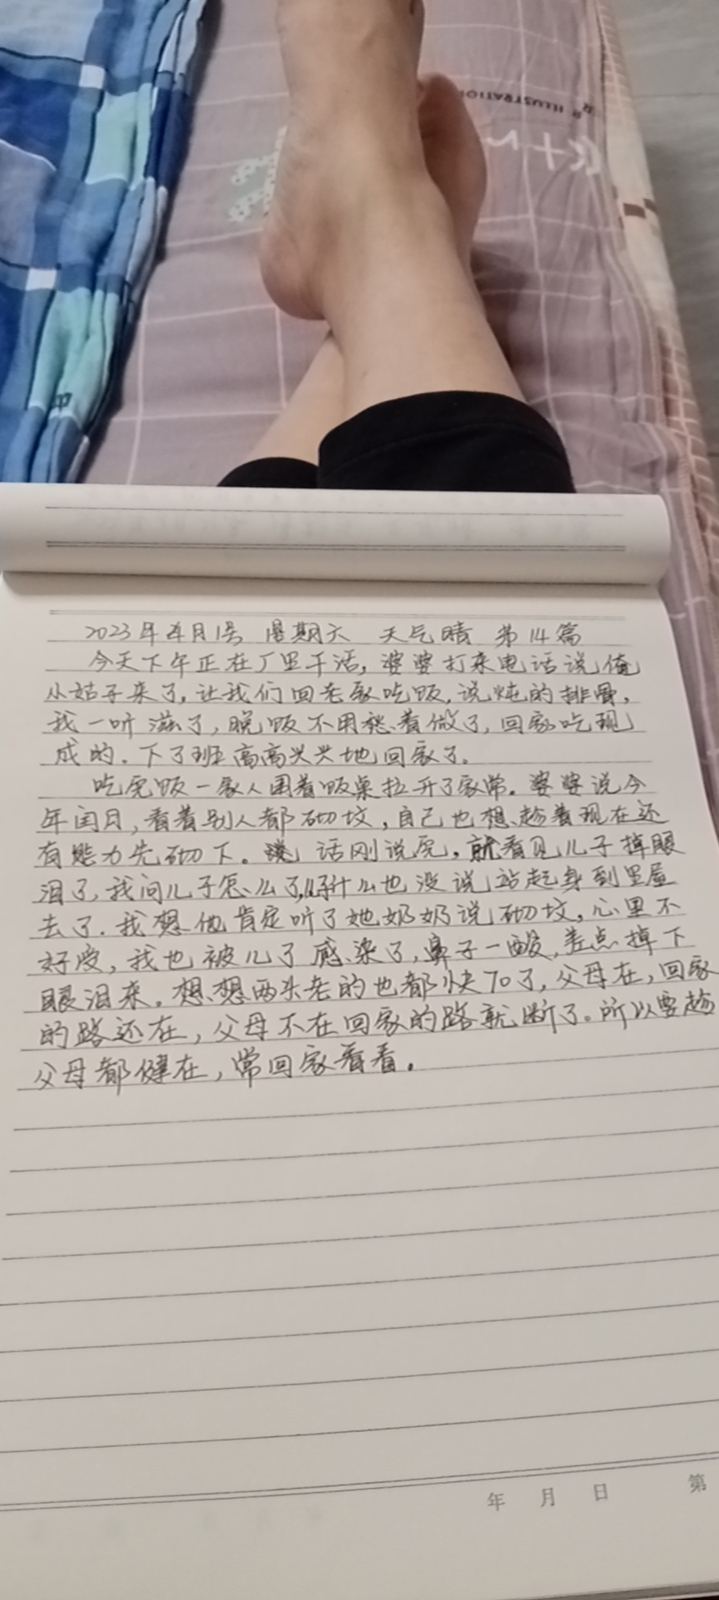 R ILLUSTRATIO
2023年4月1号 星期六 天气晴 第14篇
今天下午正在厂里干活,婆婆打来电话说俺
小姑子来了,让我们回老家吃饭,说炖的排骨,
我一听滋了,晚饭不用愁着做了,回家吃现
成的。下了班高高兴兴地回家了。
吃完饭一家人围着饭桌拉开了家常。婆婆说今
年闰月,看着别人都砌坟,自己也想趁着现在还
有能力先砌下。话刚说完,就看见儿子掉眼
泪了,我问儿子怎么了,儿子什么也没说站起身到里屋
去了。我想他肯定听了她奶奶说砌坟,心里不
好受,我也被儿子感染了,鼻子一酸,差点掉下
眼泪来。想想两头老的也都快70了,父母在,回家
的路还在,父母不在回家的路就断了。所以要趁
父母都健在,常回家看看。
年 月 日 第